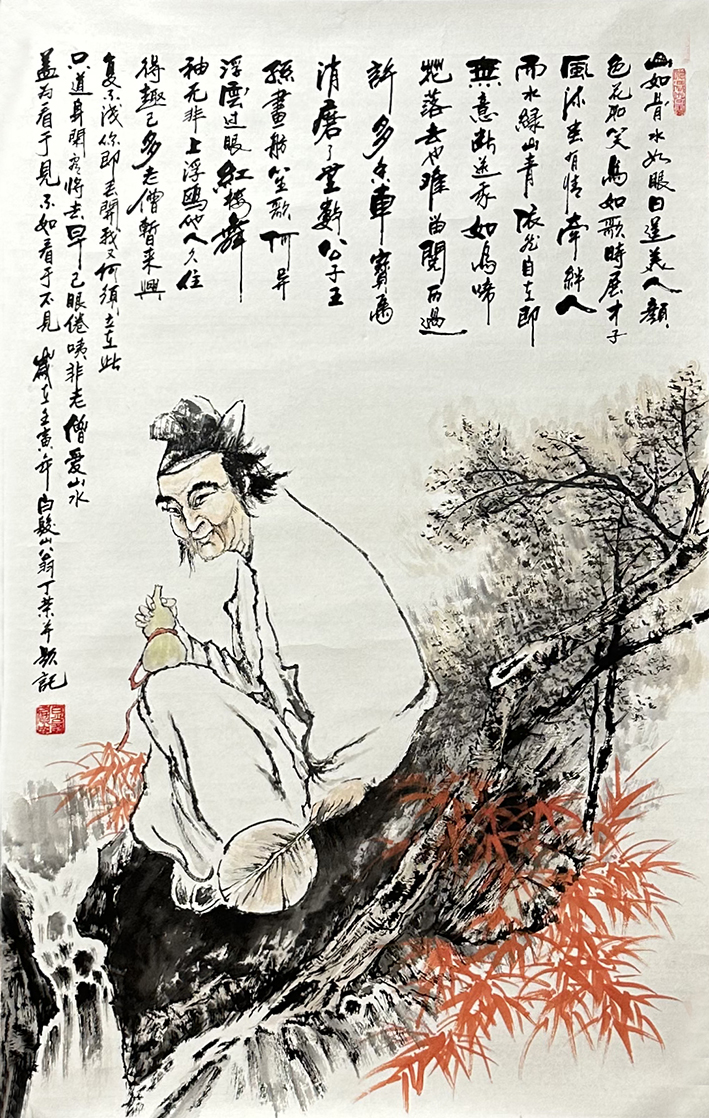 山如骨水如眼日逞美人顏
色花如笑鳥如歌時展才子
風流有情牽絆人
而水緑山青依然自在即
無意斷送我如鳥啼
花落去也難留閱過
許多香車寶馬
消磨了無數公子王
孫畫舫笙歌何异
浮雲过眼紅樓舞
袖无非上浮鷗他人久住
得趣已多老僧暫来興
复不浅你即丟開我又何須立在此
只道身閑將去早已眼倦咦非老僧愛山水
盖为看于見不如看于不見 歲在壬寅年白髮山翁丁榮并题記